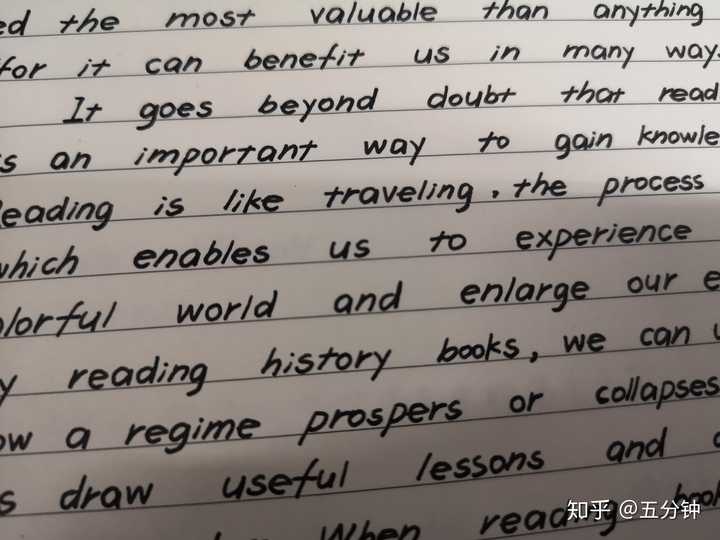 ed the most valuable than anything
for it can benefit us in many ways
It goes beyond doubt that read
s an important way to gain knowle
eading is like traveling, the process
which enables us to experience
lorful world and enlarge our e
y reading history books, we can
ow a regime prospers or collapses
s draw useful lessons and
When reading book
知乎 @五分钟